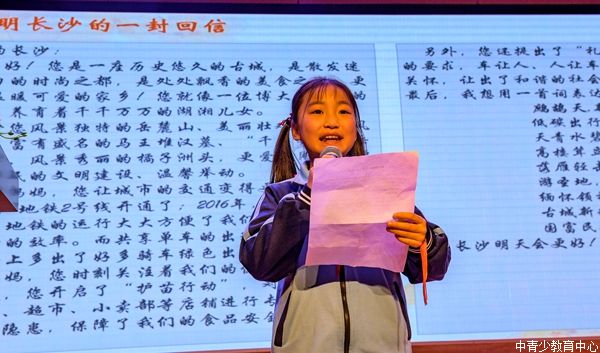 明长沙的一封回信
的长沙：
好！您是一座历史悠久的古城，是散发迷
的时尚之都，是处处飘香的美食之
暖可爱的家乡！您就像一位博大
养育着千千万万的湖湘儿女。
您风景独特的岳麓山、美丽壮
富有盛名的马王堆汉墓、“千
风景秀丽的橘子洲头，更爱
的文明建设，温馨举动。
妈妈，您让城市的交通变得
地铁2号线开通了；2016年
地铁的运行大大方便了我们
的效率。而共享单车的出
上多出了好多骑车绿色出
妈，您时刻关注着我们的
，您开启了“护苗行动”，对
、超市、小卖部等店铺进行专
隐患，保障了我们的食品安全
另外，您还提出了“礼
的要求，车让人、人让车
关怀，让出了和谐的社会
最后，我想用一首词表达
鹧鸪天
低碳出行
天青水碧
高楼耸立
荡雁轻
游圣地，
缅怀领
古城新
国富民
长沙明天会更好！
中青少教育中心